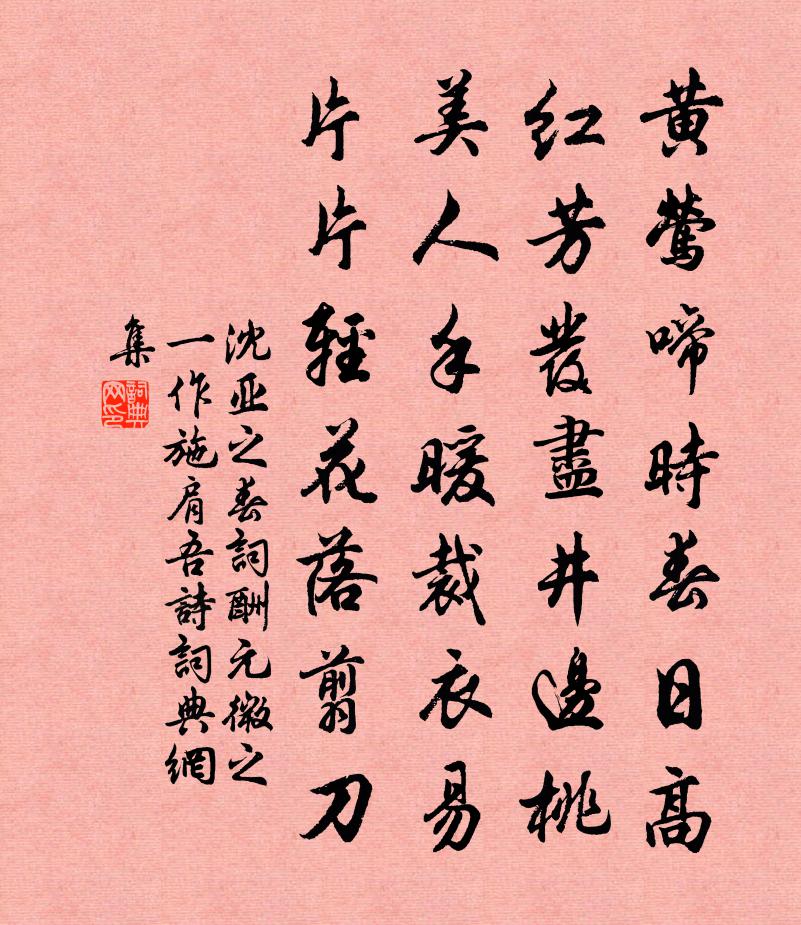 黃鶯啼時春日高
紅芳發盡井邊桃
美人手暖裁衣易
片片輕花落翦刀
沈亚之春詞酬元微之
一作施肩吾詩詞典網
集
詞典網印